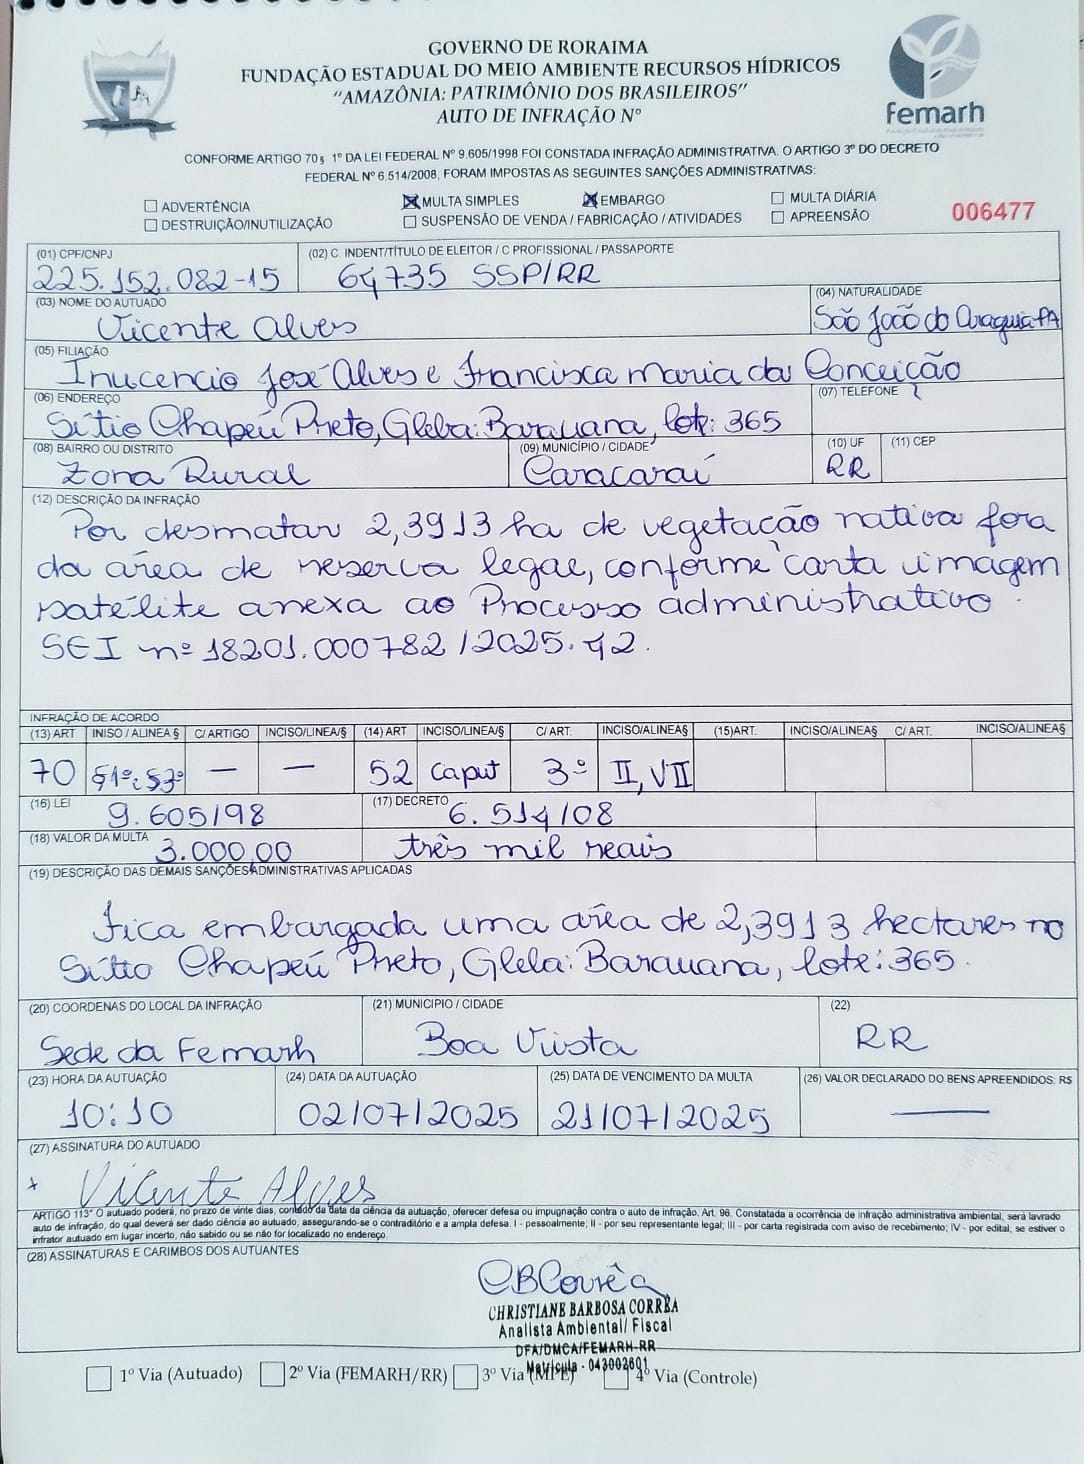 GOVERNO DE RORAIMA
FUNDAÇÃO ESTADUAL DO MEIO AMBIENTE RECURSOS HÍDRICOS
"AMAZÔNIA: PATRIMÔNIO DOS BRASILEIROS"
AUTO DE INFRAÇÃO Nº
femarh
CONFORME ARTIGO 70 § 1º DA LEI FEDERAL Nº 9.605/1998 FOI CONSTADA INFRAÇÃO ADMINISTRATIVA. O ARTIGO 3º DO DECRETO
FEDERAL Nº 6.514/2008, FORAM IMPOSTAS AS SEGUINTES SANÇÕES ADMINISTRATIVAS:
ADVERTÊNCIA MULTA SIMPLES EMBARGO MULTA DIÁRIA
DESTRUIÇÃO/INUTILIZAÇÃO SUSPENSÃO DE VENDA / FABRICAÇÃO / ATIVIDADES APREENSÃO
006477
(01) CPF/CNPJ (02) C. INDENT/TÍTULO DE ELEITOR / C PROFISSIONAL / PASSAPORTE
225.152.082-15 64735 SSP/RR
(03) NOME DO AUTUADO (04) NATURALIDADE
Vicente Alves São João do Araguia-PA
(05) FILIAÇÃO
Inucencio José Alves e Francisca Maria da Conceição
(06) ENDEREÇO (07) TELEFONE
Sítio Chapéu Preto, Gleba: Barauana, lote: 365
(08) BAIRRO OU DISTRITO (09) MUNICÍPIO / CIDADE (10) UF (11) CEP
Zona Rural Caracaraí RR
(12) DESCRIÇÃO DA INFRAÇÃO
Por desmatar 2,3913 ha de vegetação nativa fora
da área de reserva legal, conforme carta imagem
satélite anexa ao Processo administrativo
SEI nº 18201.000782/2025.42.
INFRAÇÃO DE ACORDO
(13) ART INISO / ALINEA § C/ ARTIGO INCISO/LINEA/§ (14) ART INCISO/LINEA/§ C/ ART. INCISO/ALINEA§ (15)ART. INCISO/ALINEA§ C/ ART. INCISO/ALINEA§
70 §1º, §3º — — 52 caput 3º II, VII
(16) LEI (17) DECRETO
9.605/98 6.514/08
(18) VALOR DA MULTA
3.000,00 três mil reais
(19) DESCRIÇÃO DAS DEMAIS SANÇÕES ADMINISTRATIVAS APLICADAS
Fica embargada uma área de 2,3913 hectares no
Sítio Chapéu Preto, Gleba: Barauana, lote: 365.
(20) COORDENAS DO LOCAL DA INFRAÇÃO (21) MUNICIPIO / CIDADE (22)
Sede da Femarh Boa Vista RR
(23) HORA DA AUTUAÇÃO (24) DATA DA AUTUAÇÃO (25) DATA DE VENCIMENTO DA MULTA (26) VALOR DECLARADO DO BENS APREENDIDOS: R$
10:10 02/07/2025 21/07/2025 —
(27) ASSINATURA DO AUTUADO
x Vicente Alves
ARTIGO 113º O autuado poderá, no prazo de vinte dias, contado da data da ciência da autuação, oferecer defesa ou impugnação contra o auto de infração. Art. 96. Constatada a ocorrência de infração administrativa ambiental, será lavrado
auto de infração, do qual deverá ser dado ciência ao autuado, assegurando-se o contraditório e a ampla defesa. I - pessoalmente; II - por seu representante legal; III - por carta registrada com aviso de recebimento; IV - por edital, se estiver o
infrator autuado em lugar incerto, não sabido ou se não for localizado no endereço.
(28) ASSINATURAS E CARIMBOS DOS AUTUANTES
CBCorrêa
CHRISTIANE BARBOSA CORRÊA
Analista Ambiental/ Fiscal
DFA/DMCA/FEMARH-RR
Matrícula - 043002601
1º Via (Autuado) 2º Via (FEMARH/RR) 3º Via (MPE) 4º Via (Controle)